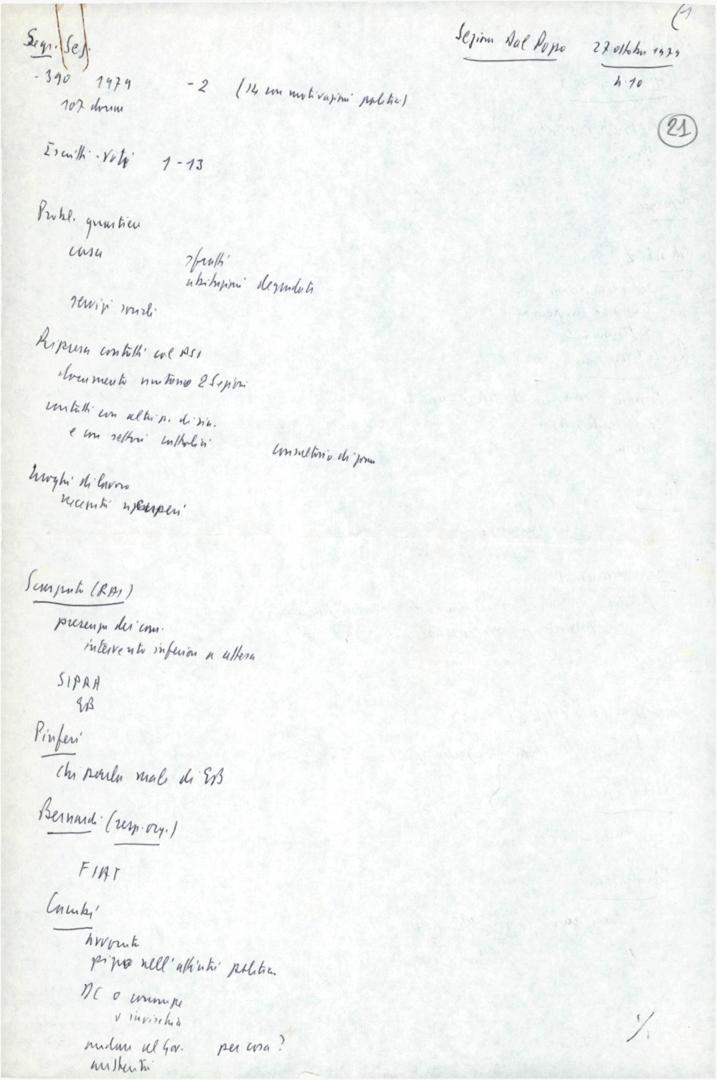 (1
Segr. Sez.
Sezione Dal Pozzo 27 ottobre 1979
h. 10
21
- 390 1979 - 2 (14 con motivazioni politiche)
107 donne
Iscritti - Voti 1-13
Probl. quartiere
casa sfratti
abitazioni degradate
servizi sociali
Ripresa contatti col PSI
documento unitario 2 Sezioni
contatti con altri p. di sin.
e con settori cattolici
consultorio di zona
Luoghi di lavoro
necessità
(RAI)
presenza dei com.
intervento inferiore a attesa
SIPRA
EB
chi parla male di EB
Bernardi (resp. org.)
FIAT
nell'attività politica
DC o
o invischia
andare al Gov. per cosa?
austerità
./.